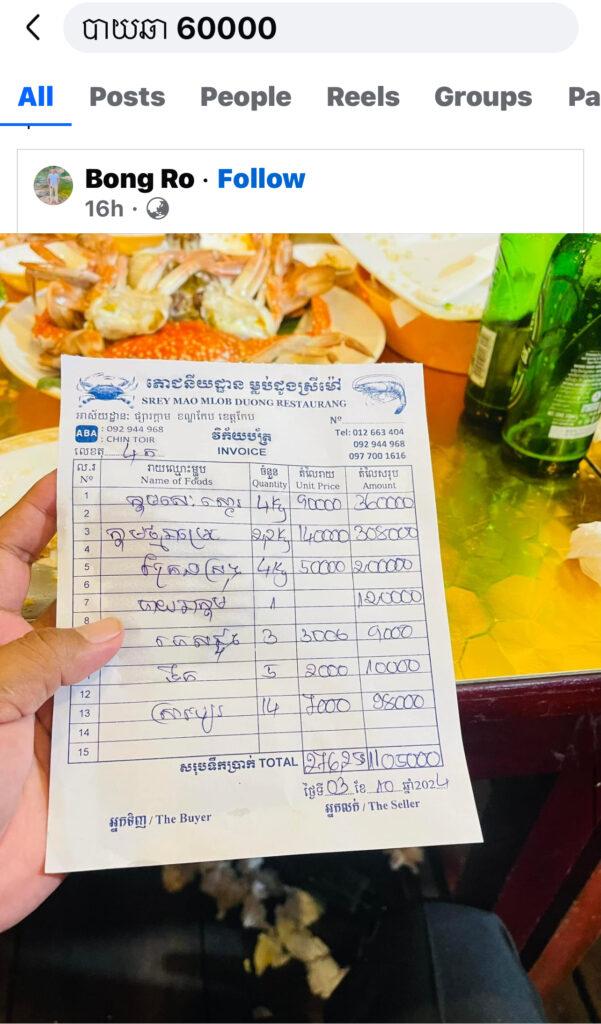 បាយឆា 60000
All Posts People Reels Groups Pa
Bong Ro · Follow
16h ·
ភោជនីយដ្ឋាន ម្លប់ដូងស្រីម៉ៅ
SREY MAO MLOB DUONG RESTAURANG
អាស័យដ្ឋាន: ផ្សារក្តាម ខណ្ឌកែប ខេត្តកែប
Nº
ABA : 092 944 968
: CHIN TOIR
វិក័យប័ត្រ
INVOICE
Tel: 012 663 404
092 944 968
097 700 1616
លេខតុ
ល.រ រាយឈ្មោះម្ហូប ចំនួន តំលៃរាយ តំលៃសរុប
Nº Name of Foods Quantity Unit Price Amount
1 4kg 90000 360000
2
3 2,2kg 140000 308000
4
5 4kg 50000 200000
6
7 1 120000
8
3 3000 9000
5 2000 10000
12
13 14 7000 98000
14
15
សរុបទឹកប្រាក់ TOTAL 1105000
ថ្ងៃទី 03 ខែ 10 ឆ្នាំ 2024
អ្នកទិញ / The Buyer អ្នកលក់ / The Seller